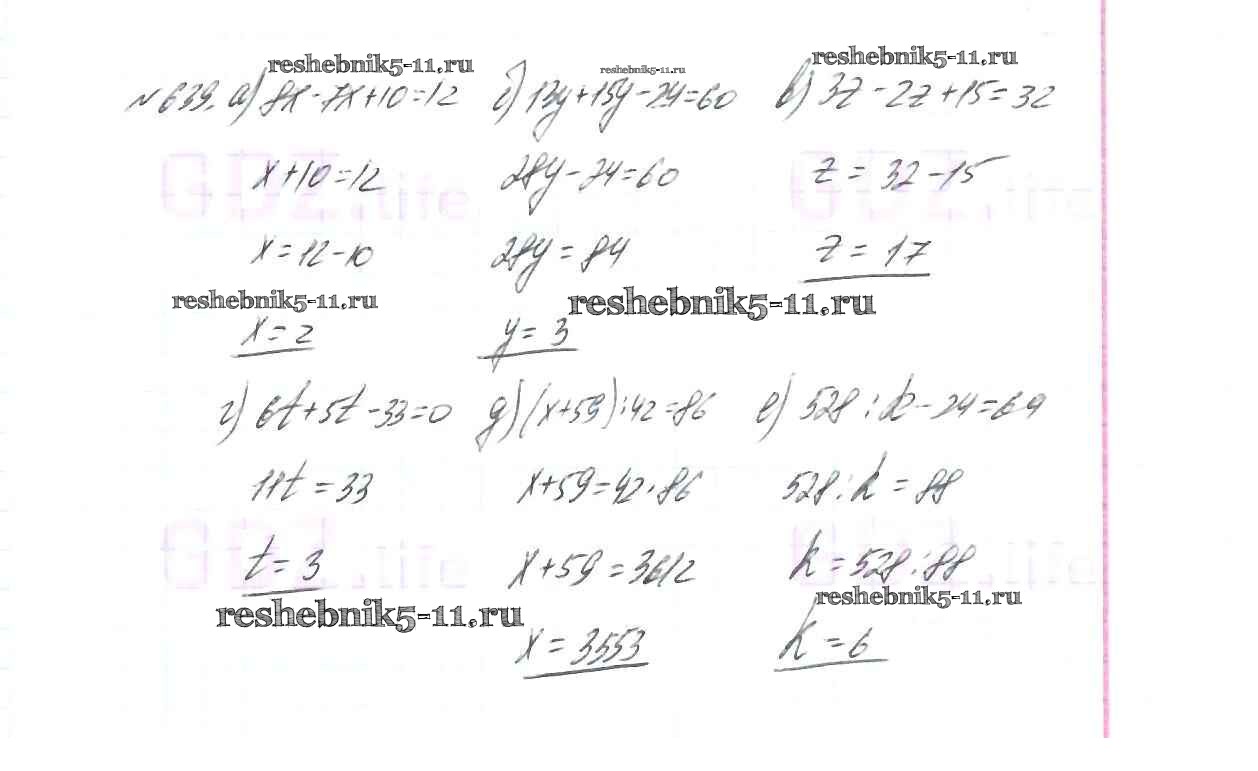 reshebnik5-11.ru reshebnik5-11.ru reshebnik5-11.ru
№639. а) 8x-7x+10=12 б) 13y+15y-24=60 в) 3z-2z+15=32
GDZ.life GDZ.life
x+10=12 28y-24=60 z=32-15
x=12-10 28y=84 z=17
reshebnik5-11.ru reshebnik5-11.ru
x=2 y=3
г) 6t+5t-33=0 д) (x+59):42=86 е) 528:k-24=64
11t=33 x+59=42·86 528:k=88
GDZ.life GDZ.life
t=3 x+59=3612 k=528:88
reshebnik5-11.ru reshebnik5-11.ru
x=3553 k=6